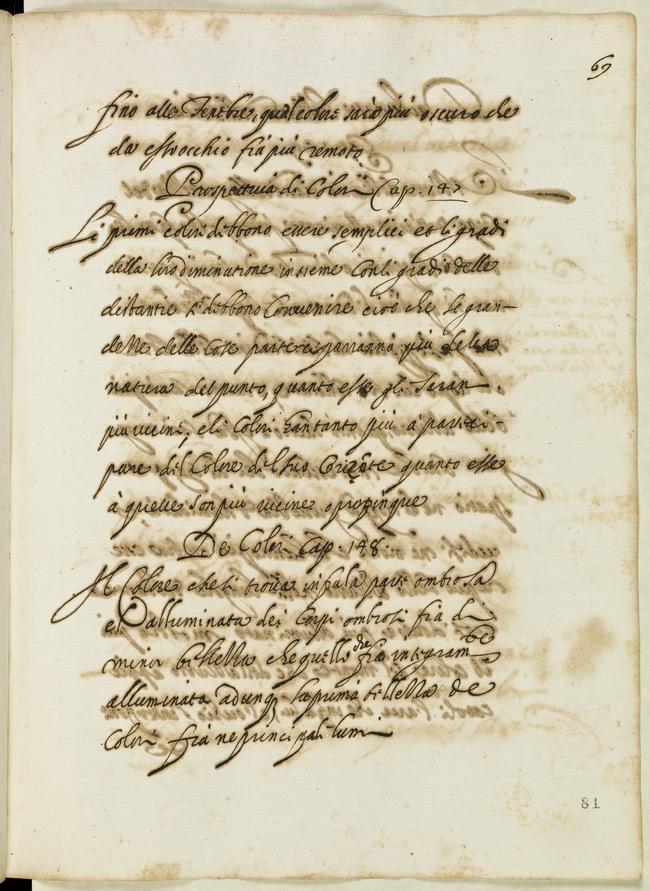 69
fino alle Tenebre, qual colore sara più oscuro che
da esso occhio fia più remoto
Prospettiua di Colori Cap. 147
Li primi Colori debbono essere semplici et li gradi
della loro diminutione insieme con li gradi delle
distantie si debbono conuenire cioè che le gran-
dezze delle cose parteciparanno più della
natura del punto, quanto esse gli saran
più uicine, e li Colori tantanto più à parteci-
pare del Colore del suo Orizōte quanto esse
à quelle son più uicine o propinque
De Colori Cap. 148
Il Colore che si troua infra la parte ombrosa
et alluminata dei Corpi ombrosi fia di
minor bellezza che quello che fia integramte
alluminata adunq la prima bellezza de
Colori fia ne principali lumi
81